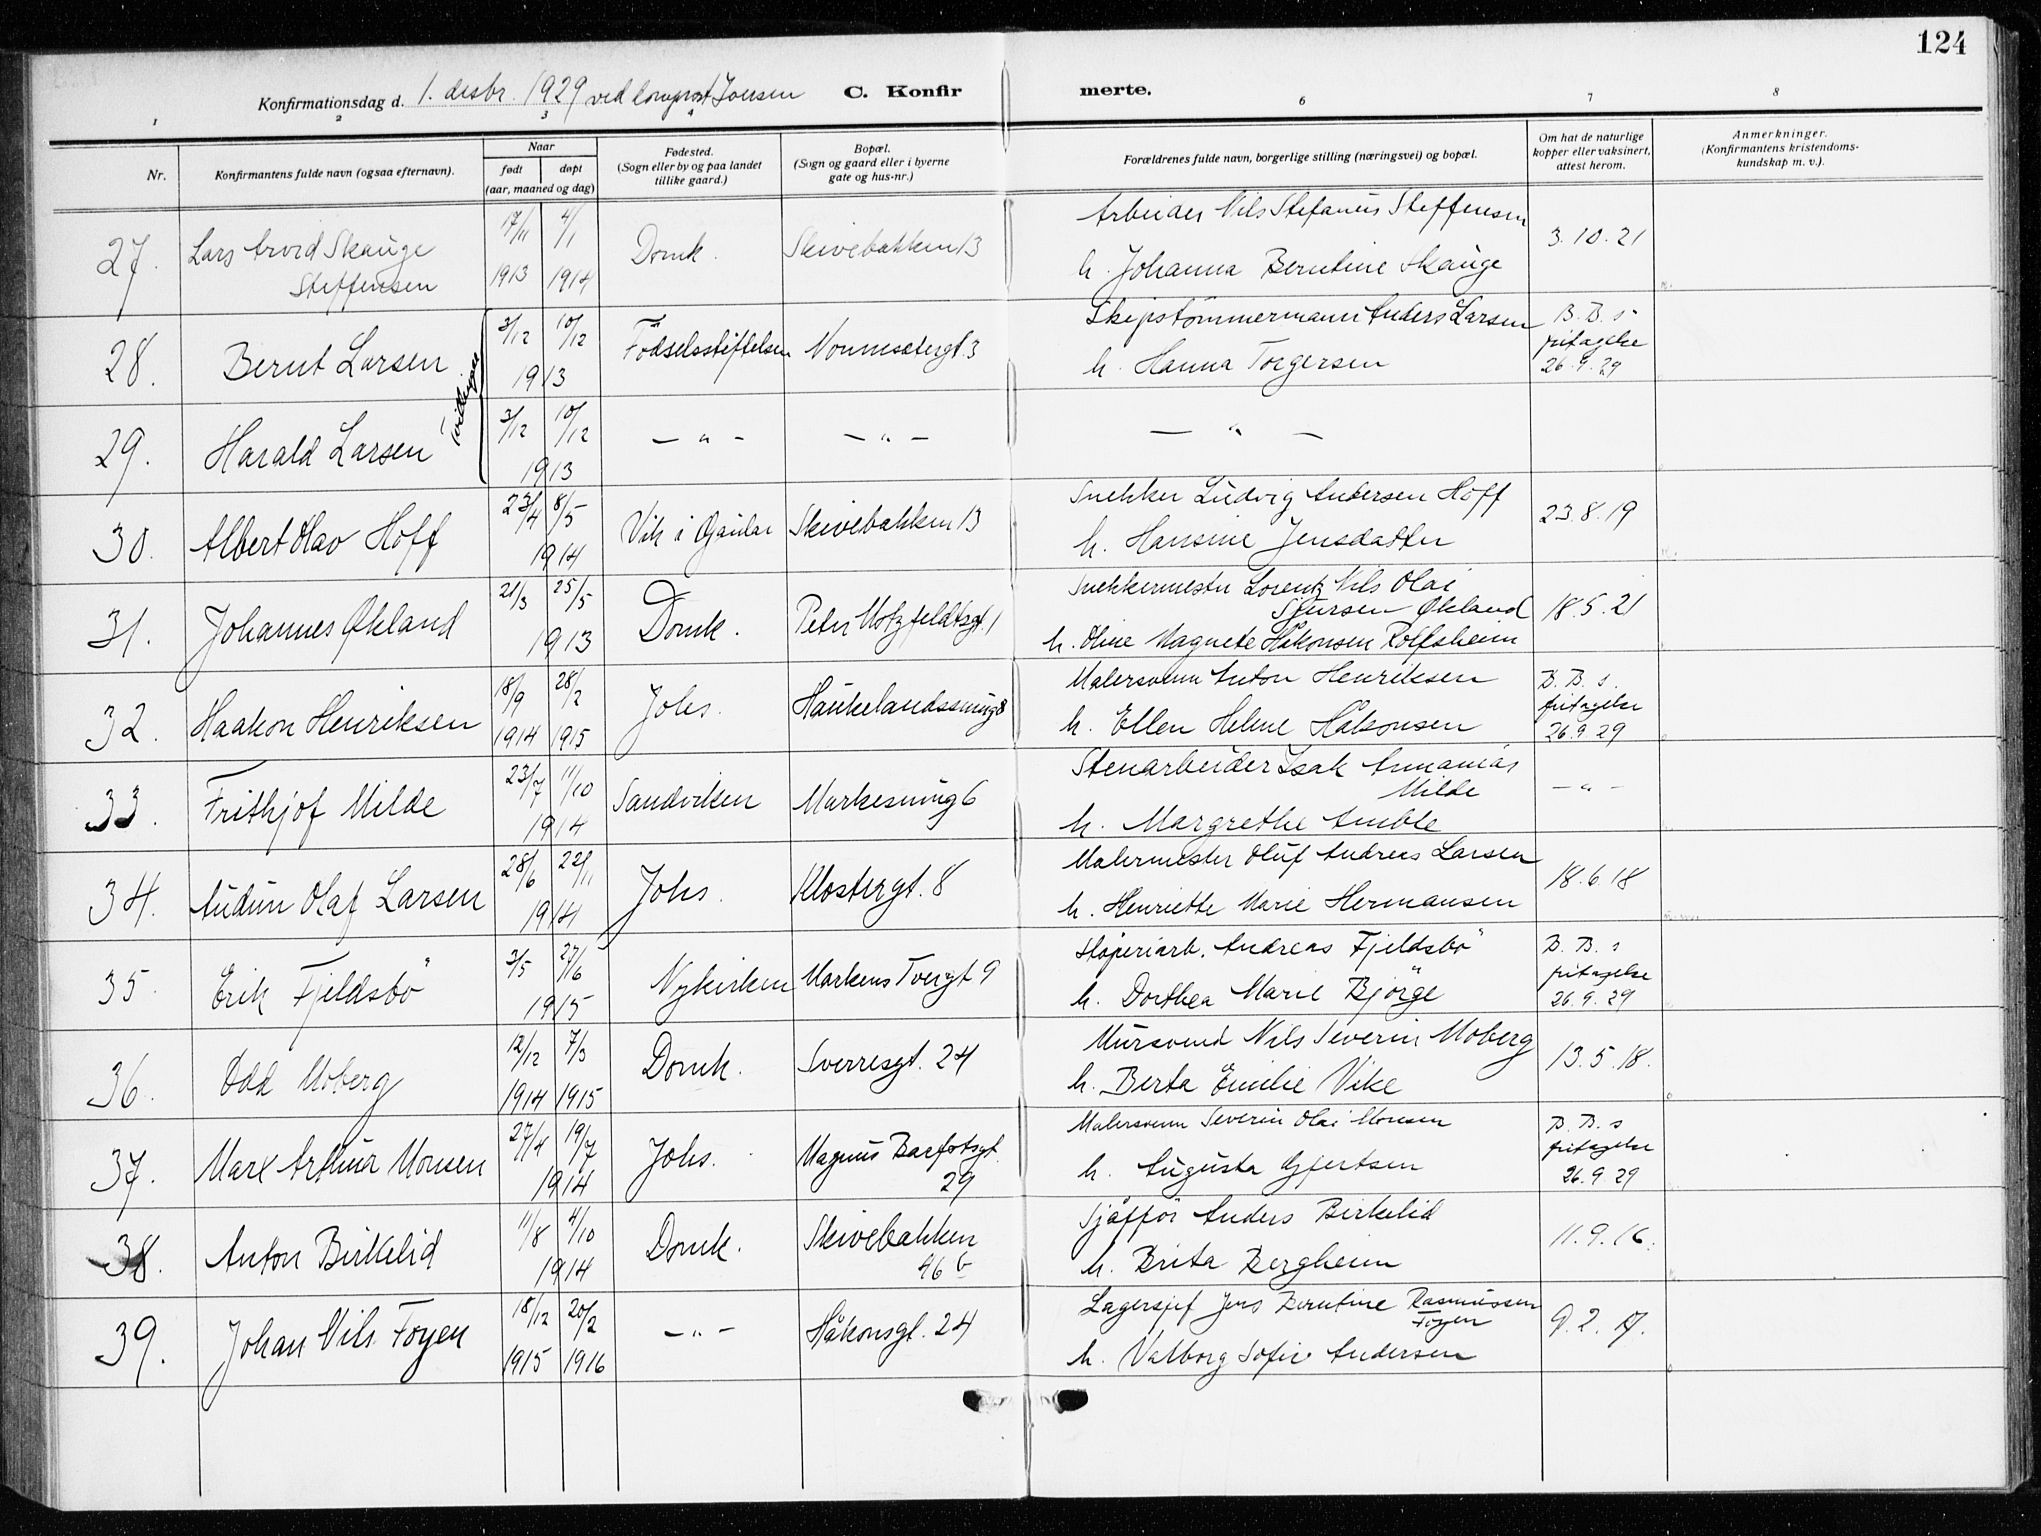 124
Konfirmationsdag d. 1. desbr. 1929 ved domprost Joensen C. Konfirmerte.
1 2 3 4 6 7 8
Nr.
Konfirmantens fulde navn (ogsaa efternavn).
Naar
født døpt
(aar, maaned og dag)
Fødested.
(Sogn eller by og paa landet
tillike gaard.)
Bopæl.
(Sogn og gaard eller i byerne
gate og hus-nr.)
Forældrenes fulde navn, borgerlige stilling (næringsvei) og bopæl.
Om hat de naturlige
kopper eller vaksinert,
attest herom.
Anmerkninger.
(Konfirmantens kristendoms-
kundskap m. v.).
27. Lars Arvid Skauge 17/11 4/1 Domk. Skivebakken 13 Arbeider Nils Stefanus Steffensen 3.10.21
Steffensen 1913 1914 h. Johanna Berntine Skauge
28. Bernt Larsen 3/12 10/12 Fødselsstiftelsen Nonnesetergt. 3 Skipstömmermann Anders Larsen B. B. s
1913 h. Hanna Torgersen fritagelse
26.9.29
tvillinger
29. Harald Larsen 3/12 10/12 — " — — " — — " —
1913
30. Albert Olav Hoff 23/4 8/5 Vik i Skivebakken 13 Snekker Ludvig Andersen Hoff 23.8.19
1914 h. Hansine Jensdatter
31. Johannes Økland 21/3 25/5 Domk. Peter Motzfeldtsgt. 1 Snekkermester Lorentz Nils Olai
1913 Sjursen Økland 18.5.21
h. Oline Magnete Håkonsen Rolfsheim
32. Haakon Henriksen 18/9 28/2 Johs. Haukelandssmug 8 Malersvenn Anton Henriksen B. B. s.
1914 1915 h. Ellen Helene Håkonsen fritagelse
26.9.29
33. Frithjof Milde 23/7 11/10 Sandviken Markesmug 6 Stenarbeider Isak Annanias
1914 Milde — " —
h. Margrethe Amble
34. Audun Olaf Larsen 28/6 22/11 Johs. Klostergt. 8 Malermester Oluf Andreas Larsen 18.6.18
1914 h. Henriette Marie Hermansen
35. Erik Fjeldsbö 3/5 27/6 Nykirken Markens Tvergt 9 Støperiarb. Andreas Fjeldsbö B. B. s
1915 h. Dorthea Marie Björge fritagelse
26.9.29
36. Odd Moberg 12/12 7/3 Domk. Sverresgt. 24 Mursvend Nils Severin Moberg 13.5.18.
1914 1915 h. Berta Emilie Vike
37. Marx Arthur Monsen 27/4 19/7 Johs. Magnus Barfotsgt. Malersvenn Severin Olai Monsen B. B. s
1914 29 h. Augusta Gjertsen fritagelse
26.9.29
38. Anton Birkelid 11/8 4/10 Domk. Skivebakken Sjåfför Anders Birkelid 11.9.16.
1914 46 b h. Brita Bergheim
39. Johan Nils Foyen 18/12 20/2 — " — Håkonsgt. 24 Lagersjef Jens Berntine Rasmussen
Foyen 9.2.17.
1915 1916 h. Valborg Sofie Andersen